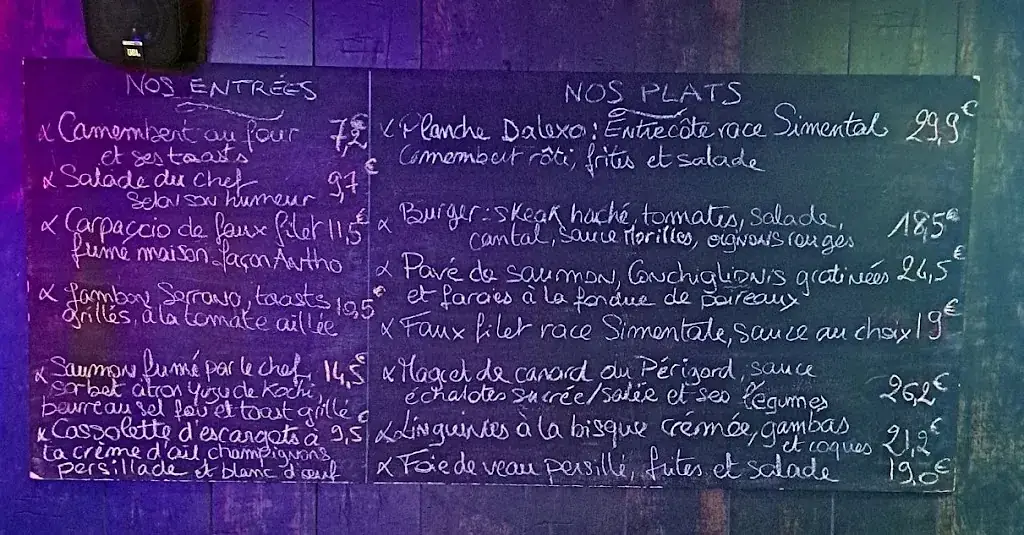 JBL
NOS ENTRÉES
α Camembert au four 7,2€
et ses toasts
α Salade du chef
selon son humeur 9,7€
α Carpaccio de faux filet 11,5€
fumé maison façon Antho
α Jambon Serrano, toasts 10,5€
grillés, à la tomate aillée
α Saumon fumé par le chef, 14,5€
sorbet citron yuzu de Kochi,
beurre au sel fou et toast grillé
α Cassolette d'escargots à 9,5€
la crème d'ail, champignons
persillade et blanc d'œuf
NOS PLATS
α Planche Dalexo : Entrecôte race Simental 29,9€
Camembert rôti, frites et salade
α Burger : skeak haché, tomates, salade, 18,5€
cantal, sauce Morilles, oignons rouges
α Pavé de saumon, Conchiglionis gratinées 24,5€
et farcies à la fondue de poireaux
α Faux filet race Simentale, sauce au choix 19€
α Magret de canard du Périgord, sauce
échalotes sucrée/salée et ses légumes 26,2€
α Linguines à la bisque crémée, gambas
et coques 21,2€
α Foie de veau persillé, frites et salade 19,0€